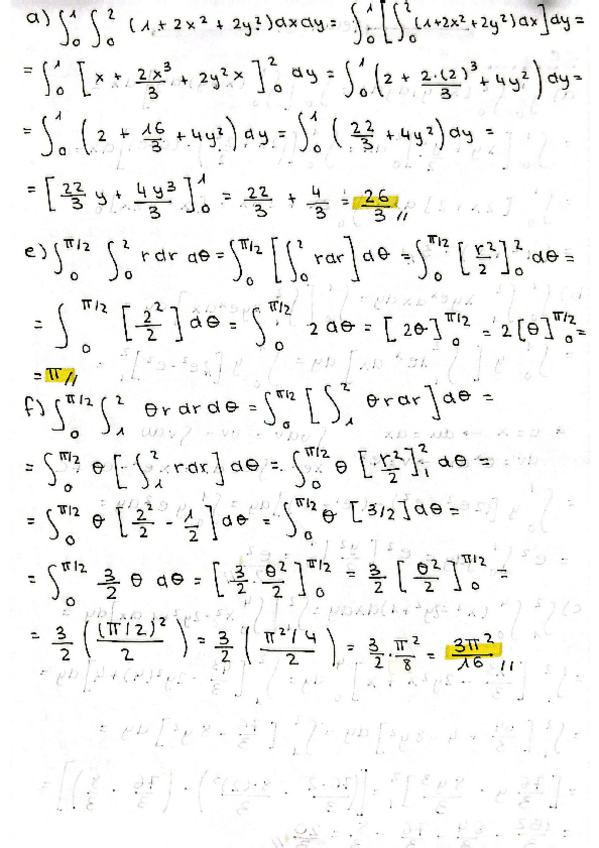 a) ∫₀¹ ∫₀² (1 + 2x² + 2y²) dx dy = ∫₀¹ [∫₀² (1+2x²+2y²) dx] dy =
= ∫₀¹ [x + 2x³/3 + 2y²x]₀² dy = ∫₀¹ (2 + 2·(2)³/3 + 4y²) dy =
= ∫₀¹ (2 + 16/3 + 4y²) dy = ∫₀¹ (22/3 + 4y²) dy =
= [22/3 y + 4y³/3]₀¹ = 22/3 + 4/3 = 26/3 //
e) ∫₀^π/2 ∫₀² r dr dθ = ∫₀^π/2 [∫₀² r dr] dθ = ∫₀^π/2 [r²/2]₀² dθ =
= ∫₀^π/2 [2²/2] dθ = ∫₀^π/2 2 dθ = [2θ]₀^π/2 = 2[θ]₀^π/2 =
= π //
f) ∫₀^π/2 ∫₁² θ r dr dθ = ∫₀^π/2 [∫₁² θ r dr] dθ =
= ∫₀^π/2 θ [∫₁² r dr] dθ = ∫₀^π/2 θ [r²/2]₁² dθ =
= ∫₀^π/2 θ [2²/2 - 1/2] dθ = ∫₀^π/2 θ [3/2] dθ =
= ∫₀^π/2 3/2 θ dθ = [3/2 θ²/2]₀^π/2 = 3/2 [θ²/2]₀^π/2 =
= 3/2 ((π/2)²/2) = 3/2 (π²/4/2) = 3/2 · π²/8 = 3π²/16 //